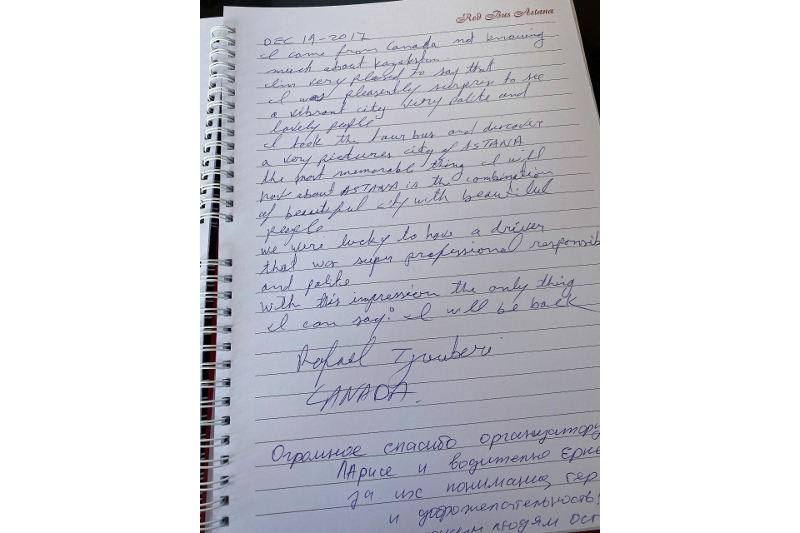 Red Bus Astana
DEC 19-2017
I came from Canada not knowing
much about Kazakstan
I'm very plased to say that
I was pleasently surprise to see
a vibrant city very polite and
lovely people
I took the tour bus and discover
a very pictures city of ASTANA
the most memorable thing I will
about ASTANA is the combination
of beautiful city with beautiful
people
we were lucky to have a driver
that was super professional responsib
and polite
with this impression the only thing
I can say: I will be back
Rafael
CANADA.
Огромное спасибо организатору
ЛАрисе и водителю Ерке
за их понимание тер
и доброжелательность!
людям ост